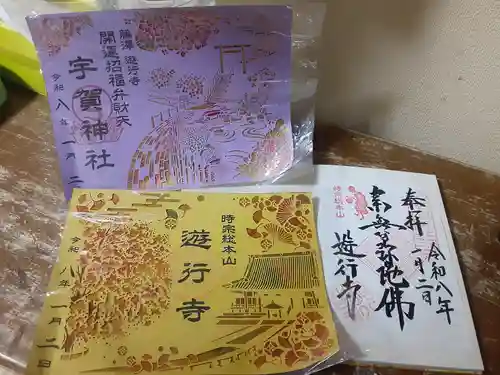 藤澤 遊行寺
開運招福弁財天
宇賀神社
令和八年一月二
時宗総本山
遊行寺
令和八年一月二日
奉拝
令和八年一月二日
南無阿弥陀佛
時宗総本山
遊行寺